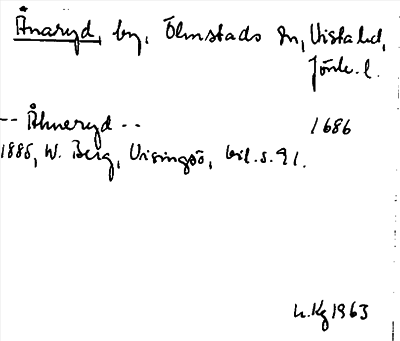 Ånaryd, by, Ölmstads sn, Vista hd,
Jönk. l.
-- Åhneryd -- 1686
1885, W. Berg, Visingsö, bil. s. 91.
L. Kg 1963